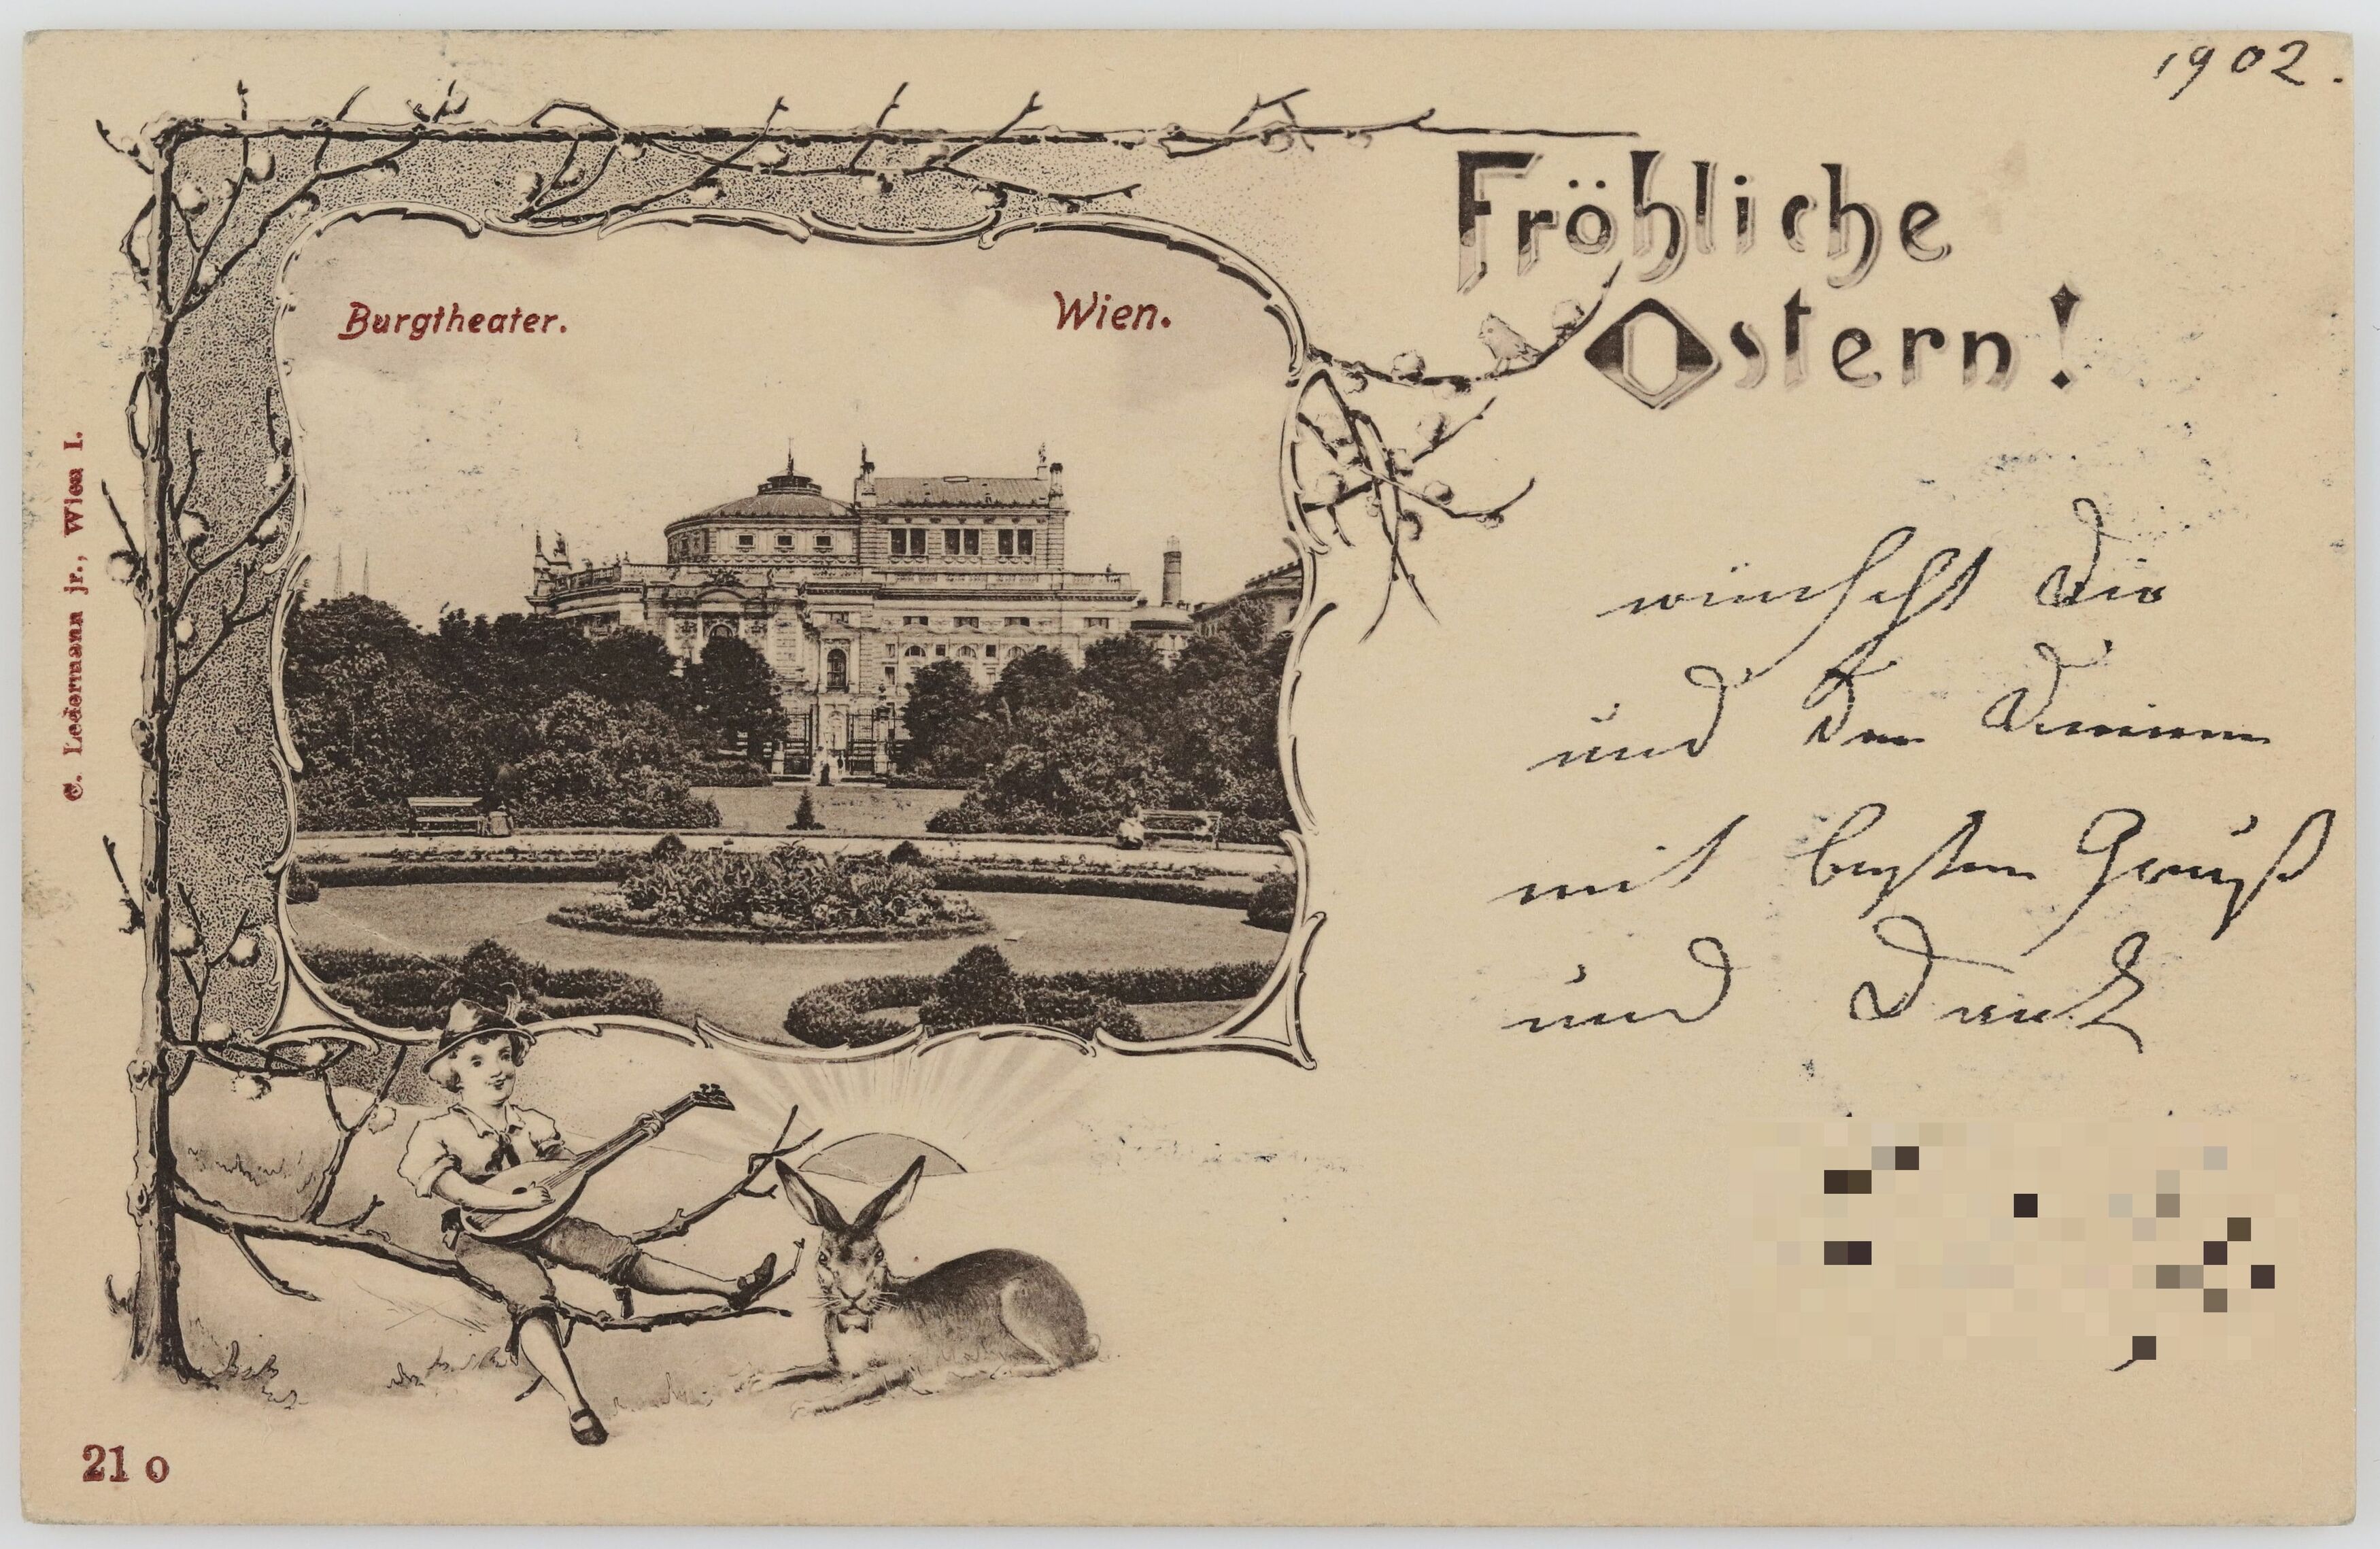 1902.
Fröhliche
Ostern!
Burgtheater. Wien.
wünscht Dir
und den Deinen
mit besten Gruß
und Dank
C. Ledermann jr., Wien I.
21 o